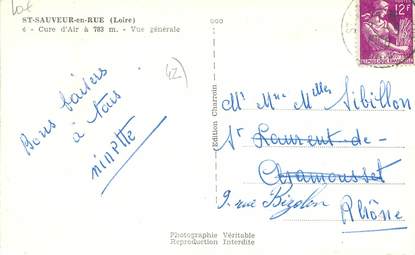 Lot
ST-SAUVEUR-en-RUE (Loire)
4 - Cure d'Air à 783 m. - Vue générale
42
12F
RÉPUBLIQUE FRANÇAISE
Bons baisers
à tous
ninette
Edition Charroin
Mr Mme Melles Sibillon
St Laurent-de-
Chamousset
9. rue Bizolon
Rhône
Photographie Véritable
Reproduction Interdite